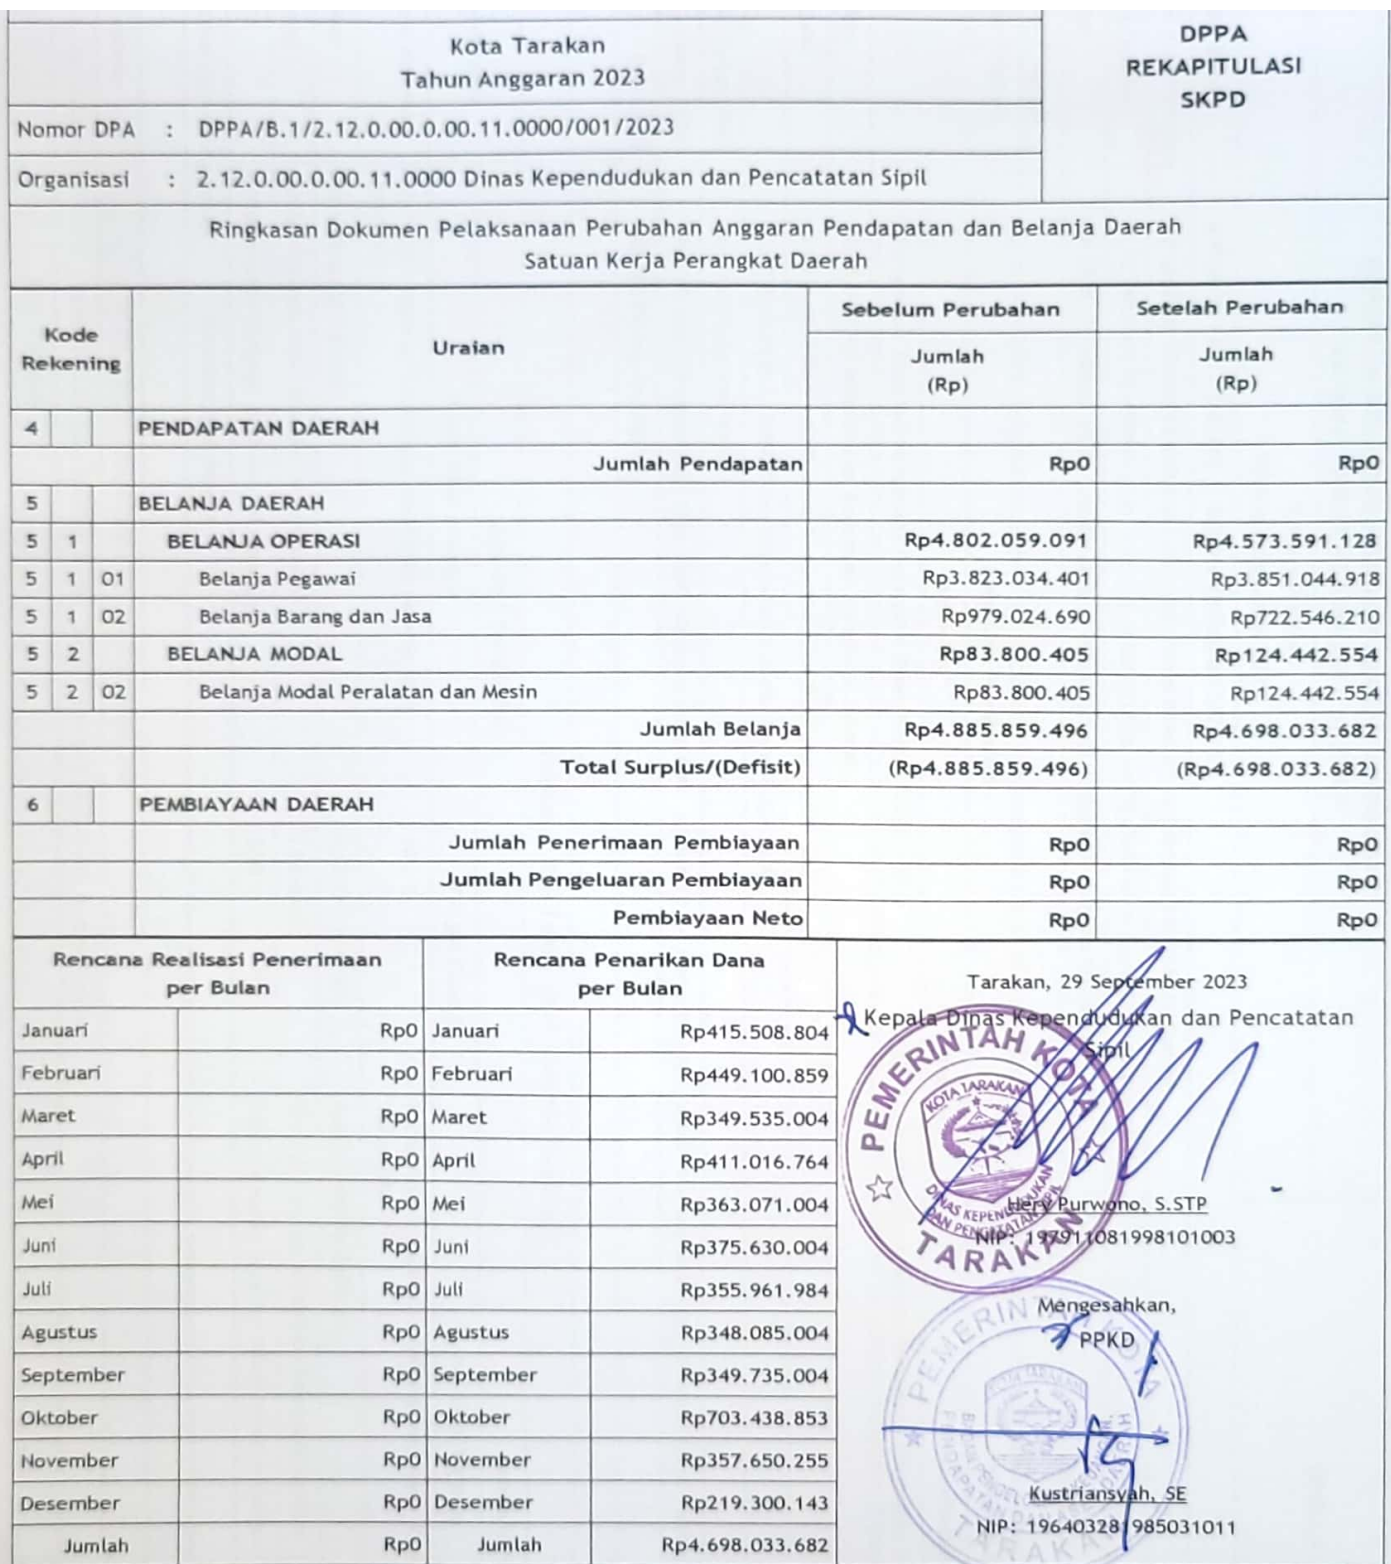 Kota Tarakan
Tahun Anggaran 2023
DPPA
REKAPITULASI
SKPD
Nomor DPA : DPPA/B.1/2.12.0.00.0.00.11.0000/001/2023
Organisasi : 2.12.0.00.0.00.11.0000 Dinas Kependudukan dan Pencatatan Sipil
Ringkasan Dokumen Pelaksanaan Perubahan Anggaran Pendapatan dan Belanja Daerah
Satuan Kerja Perangkat Daerah
Kode Rekening
Uraian
Sebelum Perubahan
Setelah Perubahan
Jumlah (Rp)
Jumlah (Rp)
4 PENDAPATAN DAERAH
Jumlah Pendapatan Rp0 Rp0
5 BELANJA DAERAH
5 1 BELANJA OPERASI Rp4.802.059.091 Rp4.573.591.128
5 1 01 Belanja Pegawai Rp3.823.034.401 Rp3.851.044.918
5 1 02 Belanja Barang dan Jasa Rp979.024.690 Rp722.546.210
5 2 BELANJA MODAL Rp83.800.405 Rp124.442.554
5 2 02 Belanja Modal Peralatan dan Mesin Rp83.800.405 Rp124.442.554
Jumlah Belanja Rp4.885.859.496 Rp4.698.033.682
Total Surplus/(Defisit) (Rp4.885.859.496) (Rp4.698.033.682)
6 PEMBIAYAAN DAERAH
Jumlah Penerimaan Pembiayaan Rp0 Rp0
Jumlah Pengeluaran Pembiayaan Rp0 Rp0
Pembiayaan Neto Rp0 Rp0
Rencana Realisasi Penerimaan
per Bulan
Rencana Penarikan Dana
per Bulan
Januari Rp0 Januari Rp415.508.804
Februari Rp0 Februari Rp449.100.859
Maret Rp0 Maret Rp349.535.004
April Rp0 April Rp411.016.764
Mei Rp0 Mei Rp363.071.004
Juni Rp0 Juni Rp375.630.004
Juli Rp0 Juli Rp355.961.984
Agustus Rp0 Agustus Rp348.085.004
September Rp0 September Rp349.735.004
Oktober Rp0 Oktober Rp703.438.853
November Rp0 November Rp357.650.255
Desember Rp0 Desember Rp219.300.143
Jumlah Rp0 Jumlah Rp4.698.033.682
Tarakan, 29 September 2023
Kepala Dinas Kependudukan dan Pencatatan
Sipil
PEMERINTAH KOTA
KOTA TARAKAN
DINAS KEPENDUDUKAN
DAN PENCATATAN SIPIL
TARAKAN
Hery Purwono, S.STP
NIP: 197911081998101003
Mengesahkan,
PPKD
PEMERINTAH KOTA
TARAKAN
Kustriansyah, SE
NIP: 196403281985031011